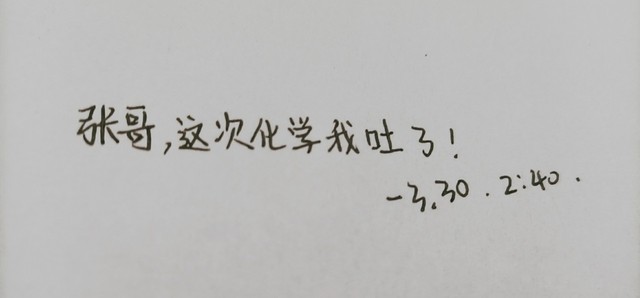 张哥,这次化学我吐了!
-3.30.2:40.